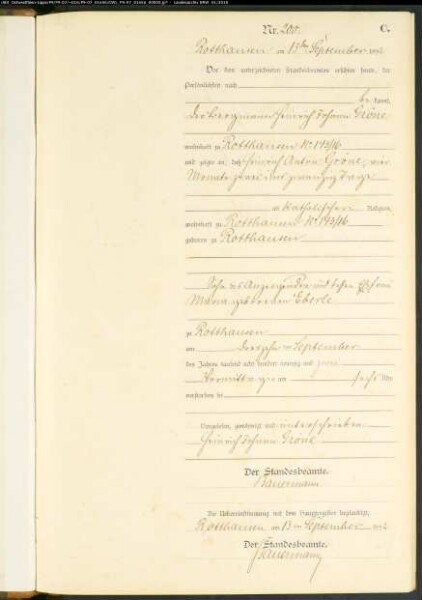 Nr. 200. C.
Rotthausen am 13ten September 1892
Vor dem unterzeichneten Standesbeamten erschien heute, der
Persönlichkeit nach
bekannt,
der Bergmann Heinrich Johann Gröne
wohnhaft zu Rotthausen No 143/16
und zeigte an, daß Heinrich Anton Gröne, vier
Monate zwei und zwanzig Tage
katholischer Religion,
wohnhaft zu Rotthausen No 143/16
geboren zu Rotthausen
Sohn des Anzeigenden und dessen Ehefrau
Maria geborenen Eberle
zu Rotthausen
am September
des Jahres tausend acht hundert neunzig und zwei
Vormittags um sechs Uhr
verstorben sei
Vorgelesen, genehmigt und unterschrieben
Heinrich Johann Gröne
Der Standesbeamte.
Die Uebereinstimmung mit dem Hauptregister beglaubigt,
Rotthausen am 13ten September 1892
Der Standesbeamte.